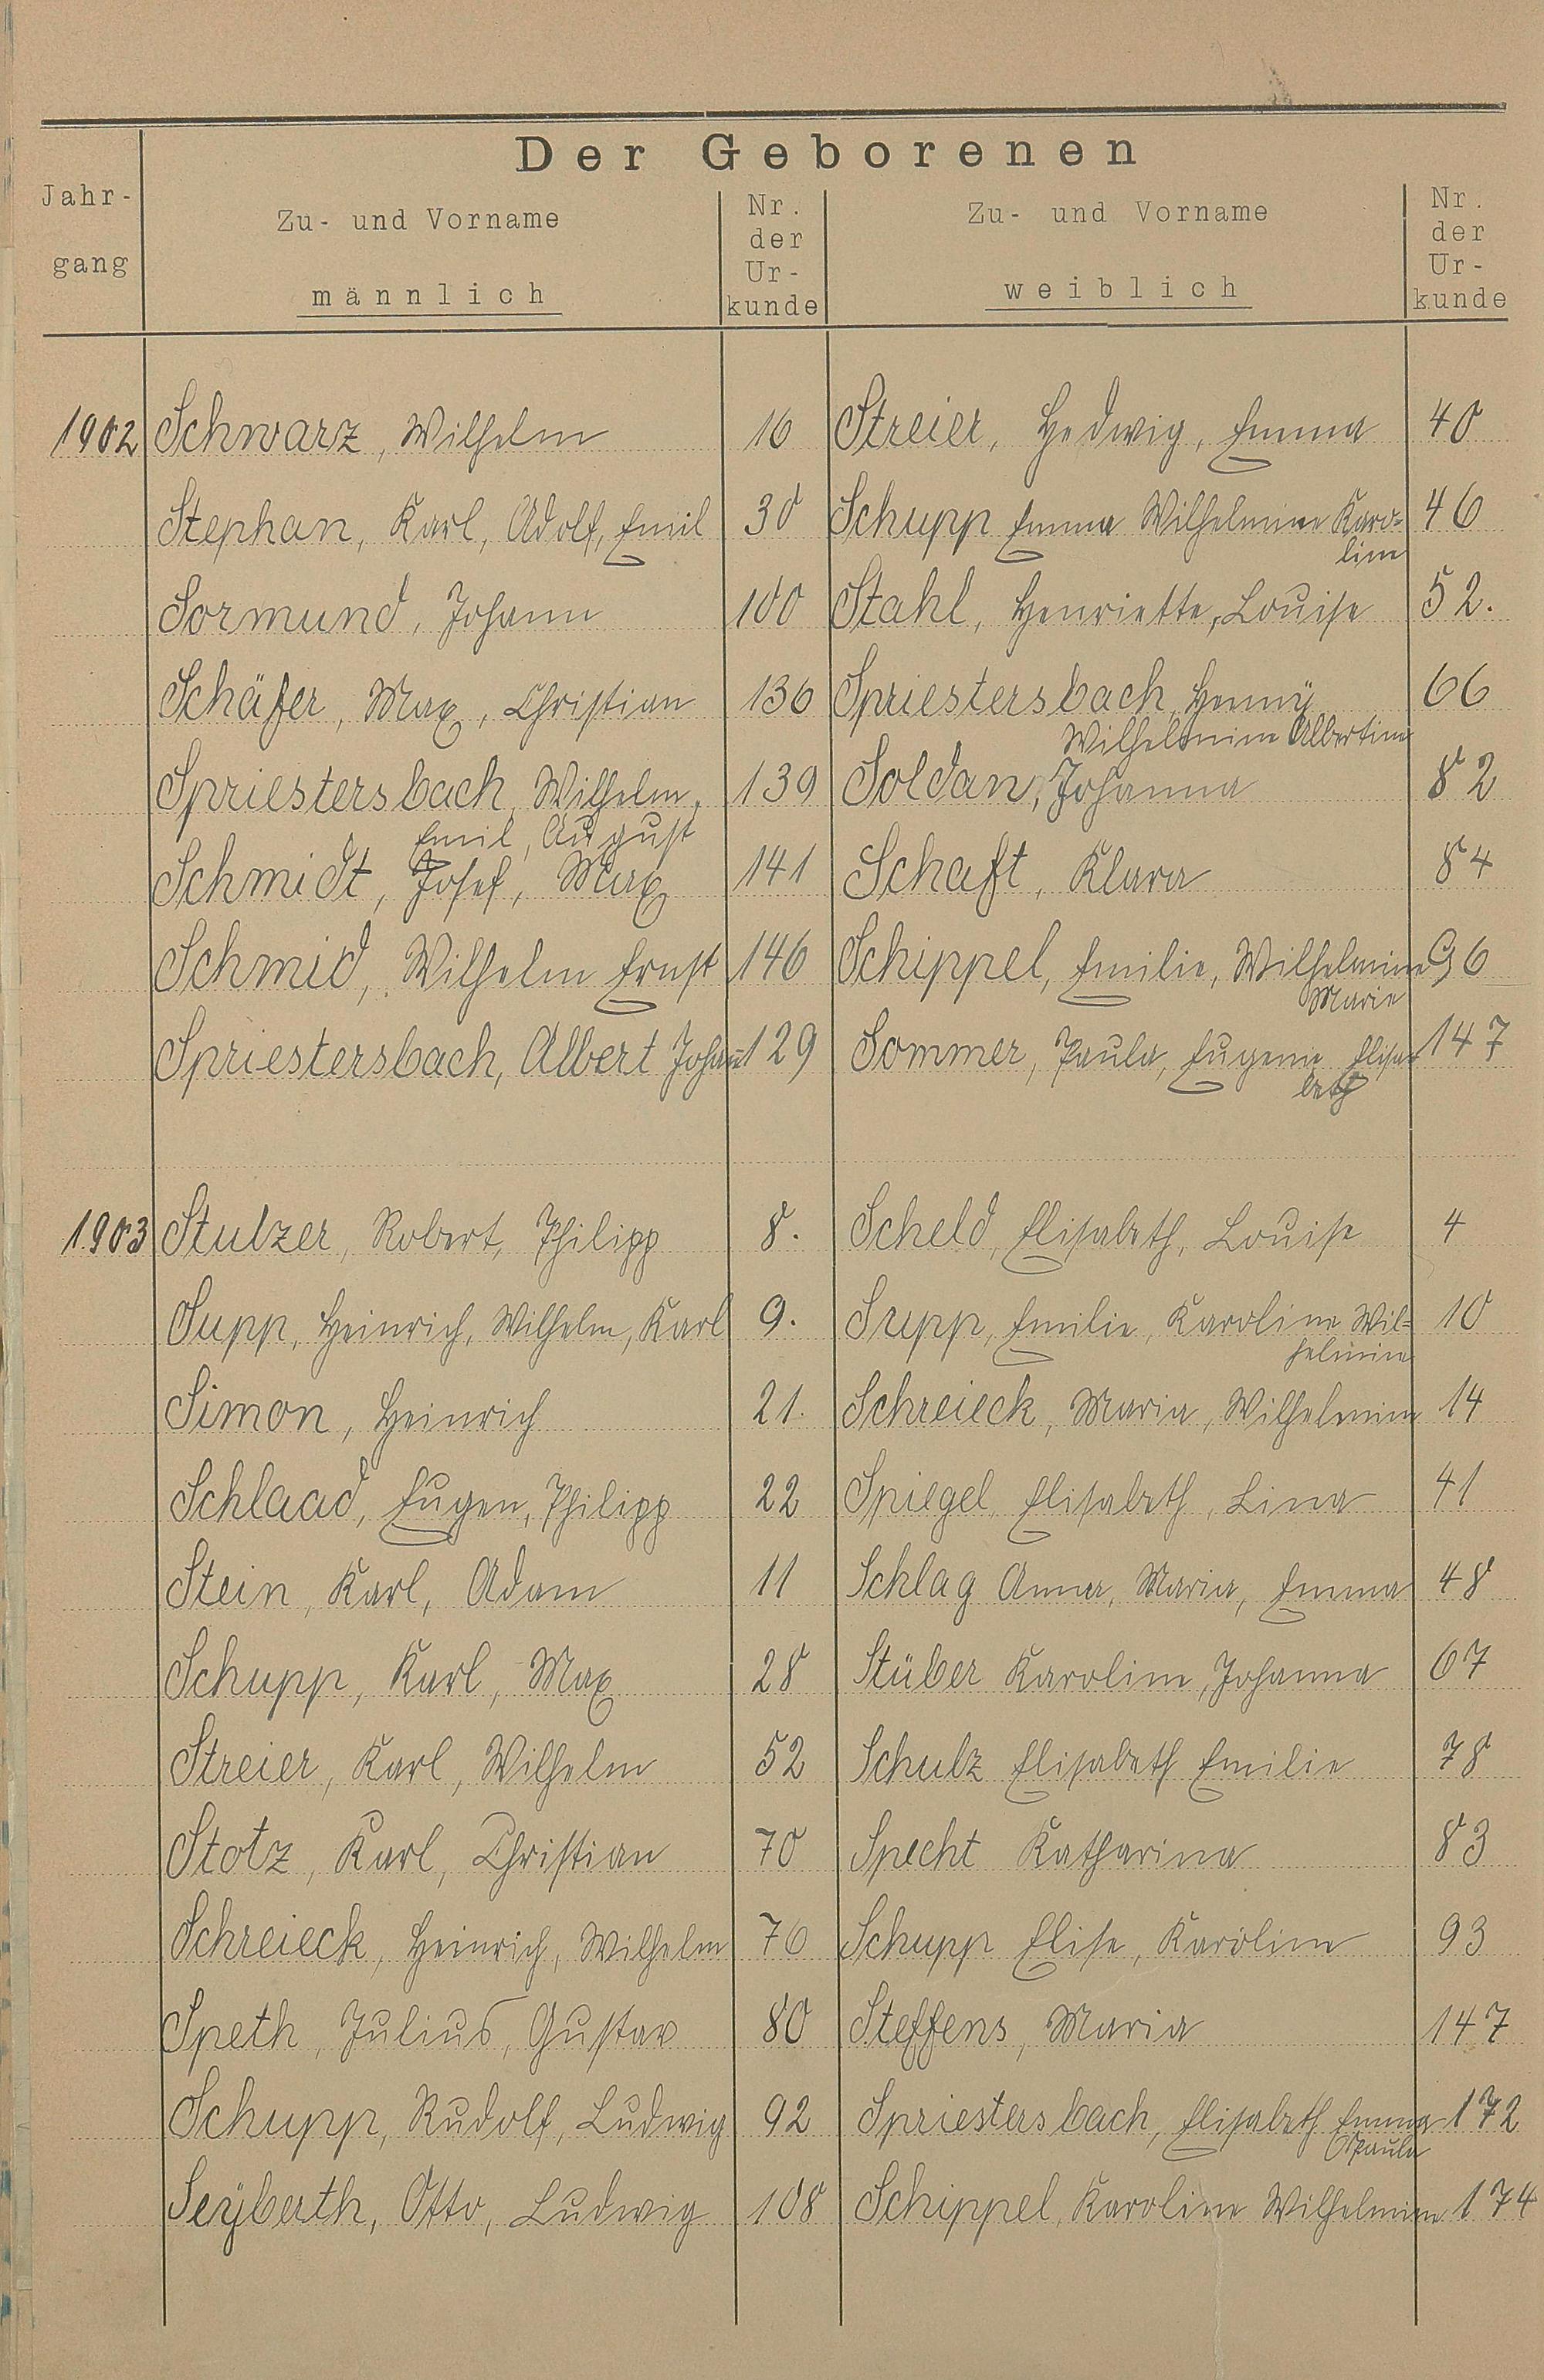 Der Geborenen
Jahr-
gang
Zu- und Vorname
männlich
Nr.
der
Ur-
kunde
Zu- und Vorname
weiblich
Nr.
der
Ur-
kunde
1902 Schwarz, Wilhelm 16 Streier, Hedwig, Emma 40
Stephan, Karl, Adolf, Emil 30 Schupp Emma Wilhelmine Karo-
line 46
Sormund, Johann 100 Stahl, Henriette, Louise 52.
Schäfer, Max, Christian 136 Spriestersbach, Henny 66
Wilhelmine Albertine
Spriestersbach, Wilhelm, 139 Soldan, Johanna 82
Emil, August
Schmidt, Josef, Max 141 Schaft, Klara 84
Schmid, Wilhelm Ernst 146 Schippel, Emilie, Wilhelmine 96
Marie
Spriestersbach, Albert Johann 129 Sommer, Paula, Eugenie Elisa- 147
beth
1903 Stulzer, Robert, Philipp 8. Scheld, Elisabeth, Louise 4
Supp, Heinrich, Wilhelm, Karl 9. Supp, Emilie, Karoline Wil- 10
helmine
Simon, Heinrich 21. Schreieck, Maria, Wilhelmine 14
Schlaad, Eugen, Philipp 22 Spiegel, Elisabeth, Lina 41
Stein, Karl, Adam 11 Schlag Anna, Maria, Emma 48
Schupp, Karl, Max 28 Stüber Karoline, Johanna 67
Streier, Karl, Wilhelm 52 Schulz Elisabeth Emilie 78
Stotz, Karl, Christian 70 Specht Katharina 83
Schreieck, Heinrich, Wilhelm 76 Schupp Elise, Karoline 93
Speth, Julius, Gustav 80 Steffens, Maria 147
Schupp, Rudolf, Ludwig 92 Spriestersbach, Elisabeth Emma 172
Paula
Seÿberth, Otto, Ludwig 108 Schippel, Karoline Wilhelmine 174